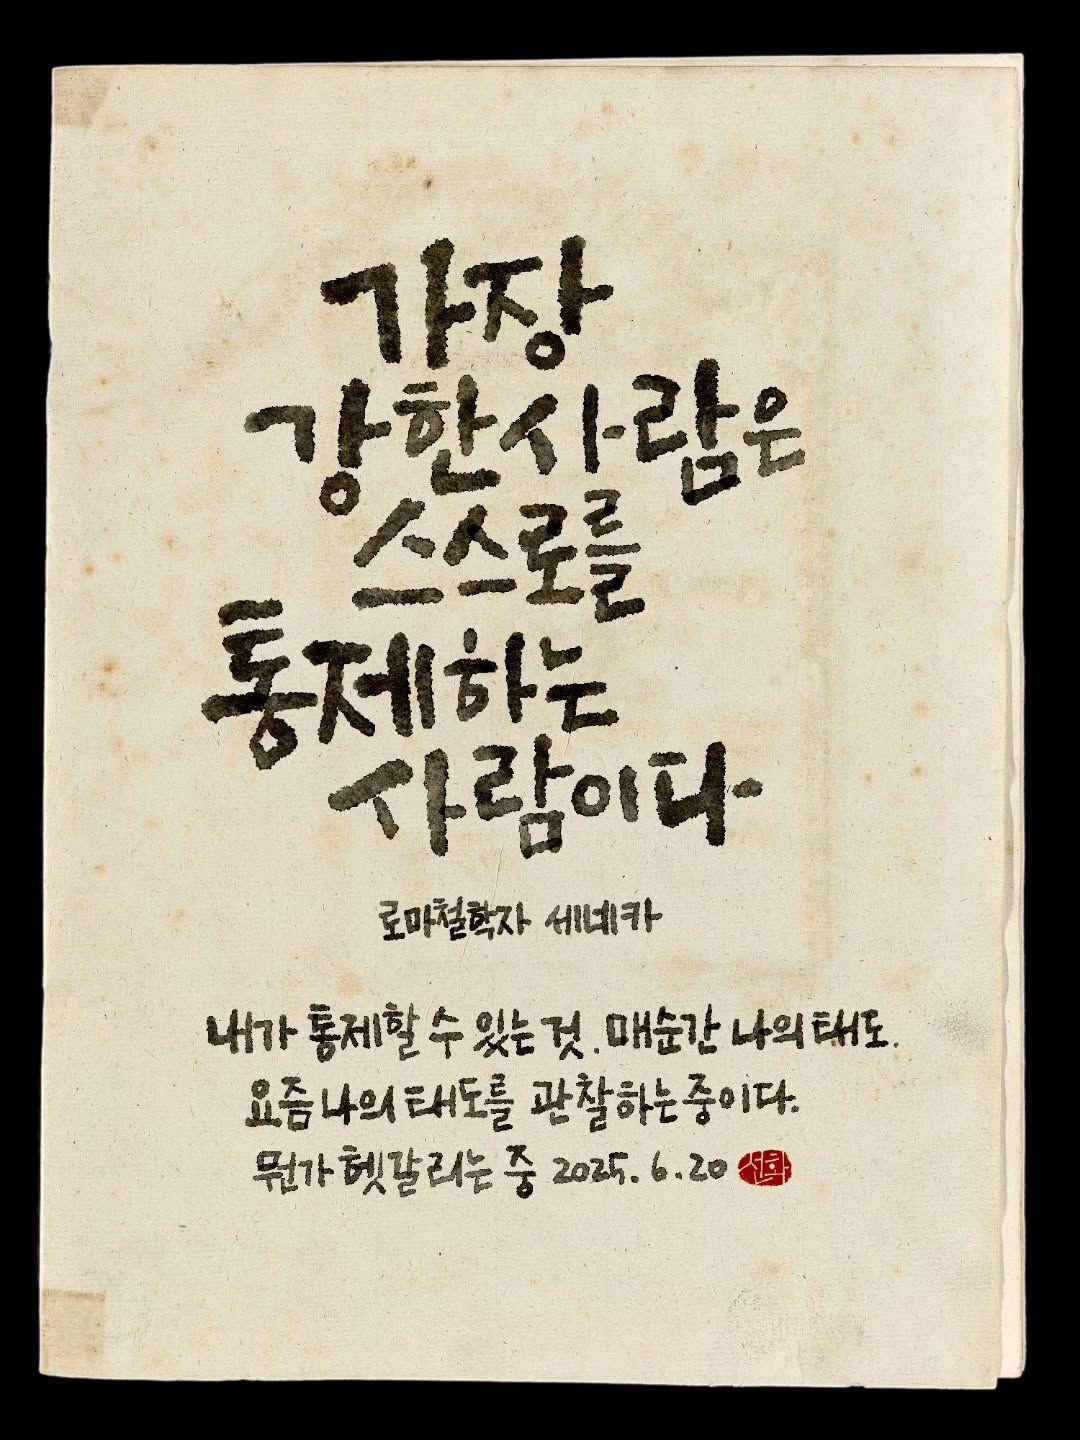 가장
강한 사람은
스스로를
통제하는
사람이다
로마철학자 세네카
내가 통제할 수 있는 것. 매순간 나의 태도.
요즘 나의 태도를 관찰하는 중이다.
뭔가 헷갈리는 중 2025. 6. 20 선화